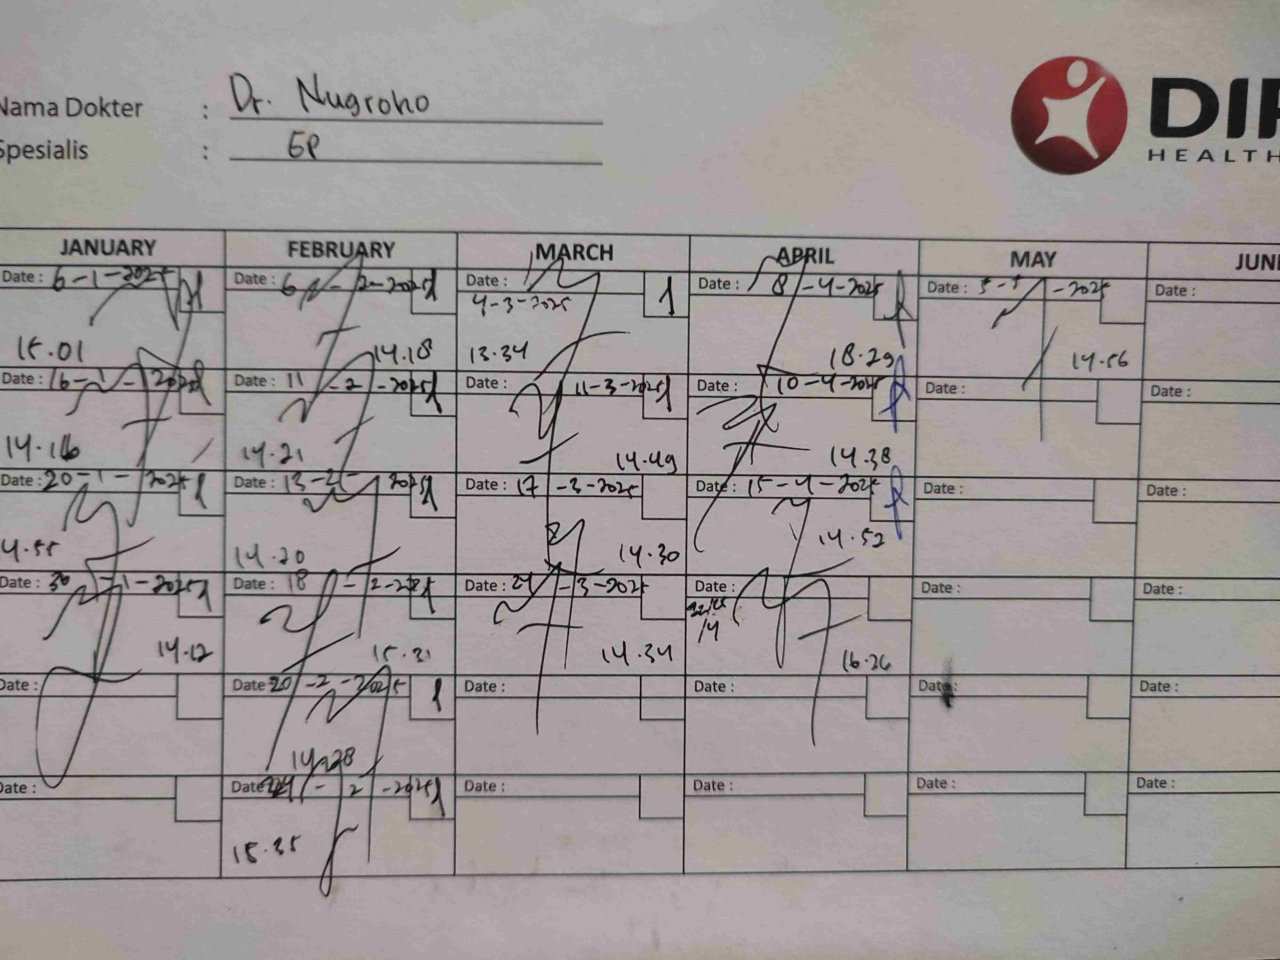 Nama Dokter : Dr. Nugroho
Spesialis : GP
DIP
HEALTH
JANUARY FEBRUARY MARCH APRIL MAY JUN
Date : 6-1-2025 Date : 6-2-2025 Date : Date : 8-4-2025 Date : 5-5-2025 Date :
4-3-2025
15.01 14.18 13.34 18.29 14.56
Date : 16-1-2025 Date : 11-2-2025 Date : 11-3-2025 Date : 10-4-2025 Date : Date :
14.16 14.21 14.49 14.38
Date : 20-1-2025 Date : 13-2-2025 Date : 17-3-2025 Date : 15-4-2025 Date : Date :
14.55 14.20 14.30 14.52
Date : 30-1-2025 Date : 18-2-2025 Date : 24-3-2025 Date : Date : Date :
14.12 15.31 14.34 16.26
Date : Date : 20-2-2025 Date : Date : Date : Date :
14.28
Date : Date : 24-2-2025 Date : Date : Date : Date :
15.35